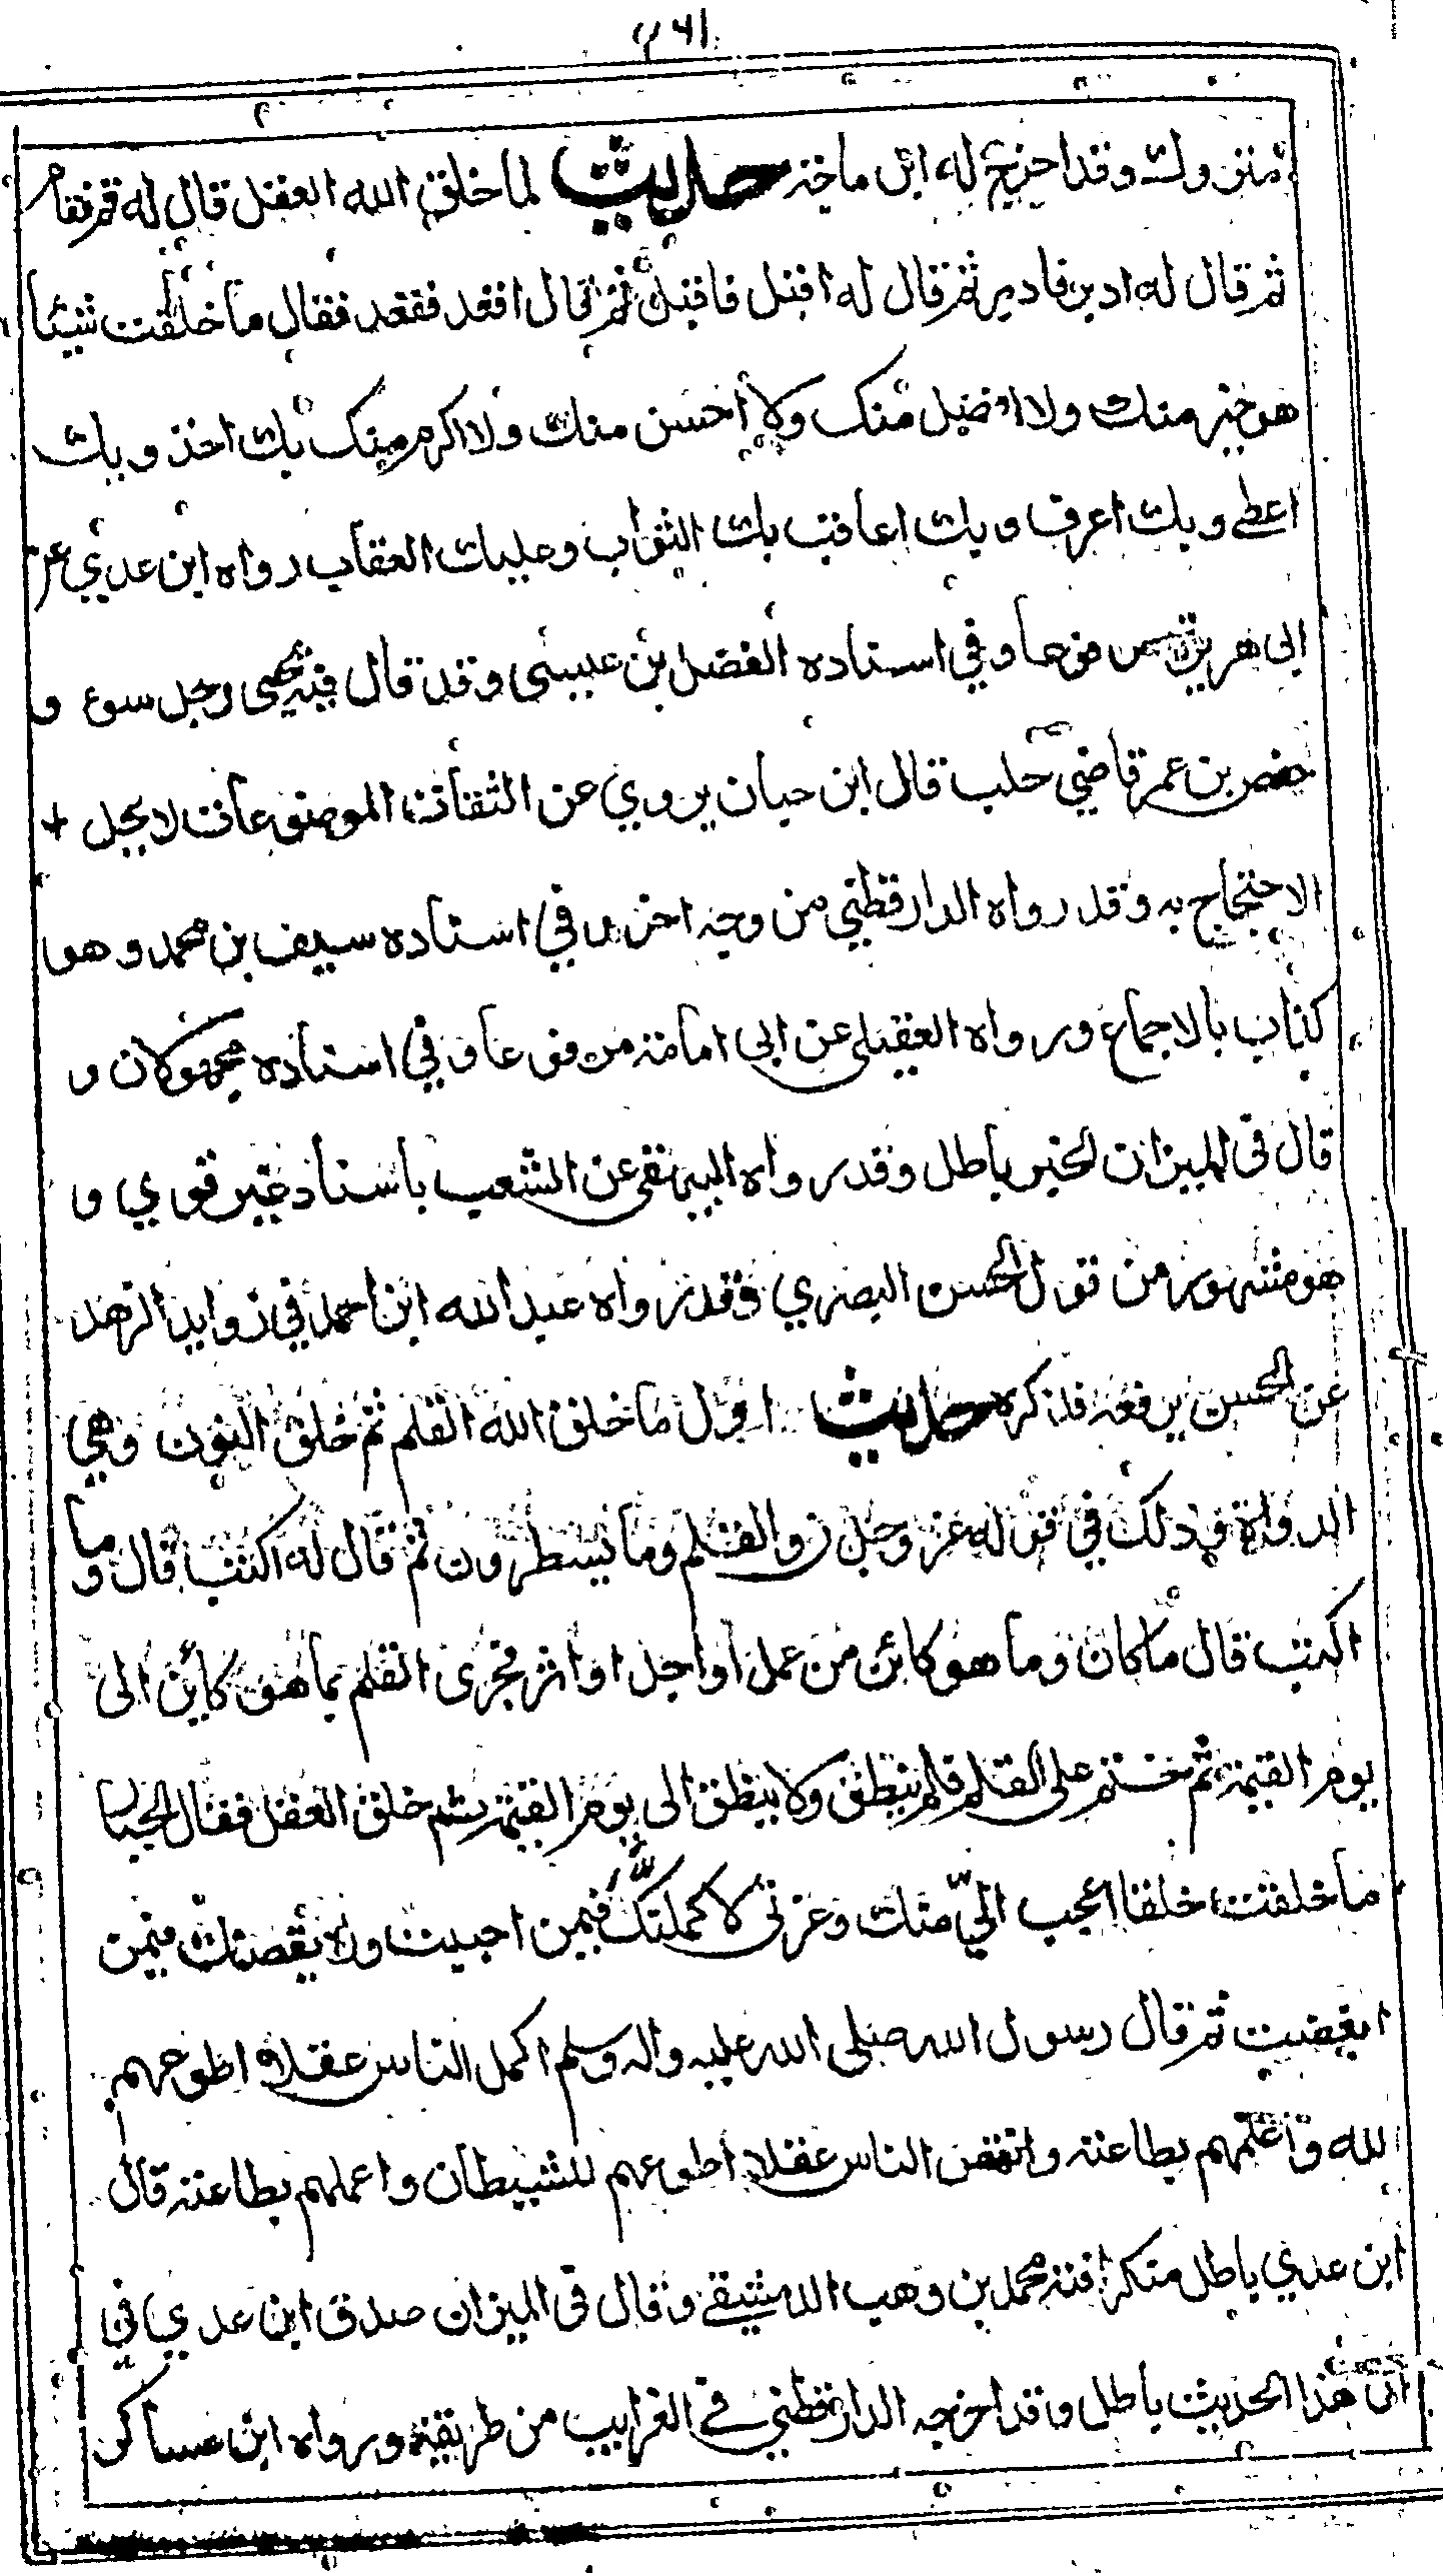 متروك وقد اخرج له ابن ماجة حديث لما خلق الله العقل قال له قم فقام
ثم قال له ادبر فادبر ثم قال له اقبل فاقبل ثم قال اقعد فقعد فقال ما خلقت شيئا
هو خير منك ولا افضل منك ولا احسن منك ولا اكرم منك بك اخذ وبك
اعطي وبك اعرف وبك اعاقب بك الثواب وعليك العقاب رواه ابن عدي عن
ابي هريرة مرفوعا وفي اسناده الفضل بن عيسى وقد قال فيه يحيى رجل سوء و
حفص بن عمر قاضي حلب قال ابن حبان يروي عن الثقات الموضوعات لا يحل
الاحتجاج به وقد رواه الدارقطني من وجه اخر وفي اسناده سيف بن محمد وهو
كذاب بالاجماع ورواه العقيلى عن ابي امامة مرفوعا وفي اسناده مجهولان و
قال فى الميزان الخبر باطل وقد رواه البيهقى عن الشعب باسناد غير قوي و
هو مشهور من قول الحسن البصري وقد رواه عبد الله ابن احمد في زوايد الزهد
عن الحسن يرفعه فذكره حديث اول ما خلق الله القلم ثم خلق النون وهي
الدواة وذلك في قوله عز وجل ن والقلم وما يسطرون ثم قال له اكتب قال وما
اكتب قال ما كان وما هو كائن من عمل او اجل او اثر فجرى القلم بما هو كائن الى
يوم القيمة ثم ختم على القلم فلم ينطق ولا ينطق الى يوم القيمة ثم خلق العقل فقال الجبار
ما خلقت خلقا اعجب الي منك وعزتى لاكملنك فيمن احببت ولانقصنك فيمن
ابغضت ثم قال رسول الله صلى الله عليه واله وسلم اكمل الناس عقلا اطوعهم
لله واعملهم بطاعته وانقص الناس عقلا اطوعهم للشيطان واعملهم بطاعته قال
ابن عدي باطل منكر افته محمد بن وهب الدمشقي وقال فى الميزان صدق ابن عدي في
ان هذا الحديث باطل وقد اخرجه الدارقطني في الغرايب من طريقه ورواه ابن عساكر